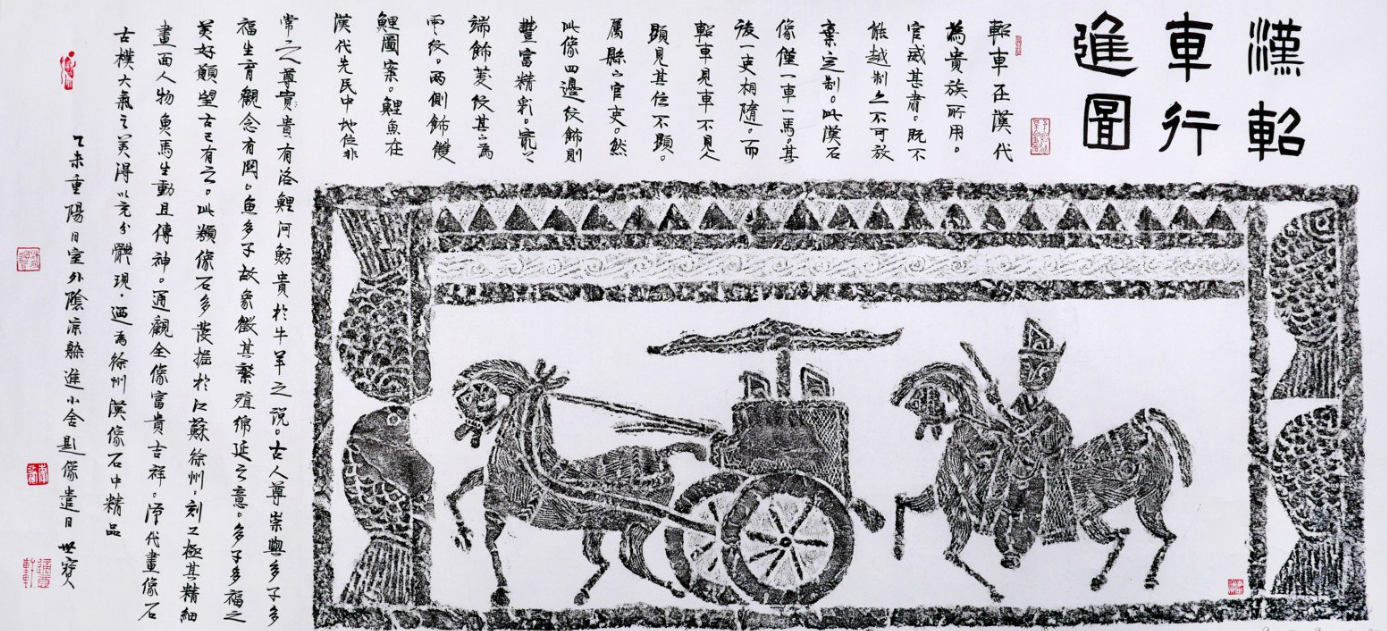 漢軺
車行
進圖
軺車在漢代
為貴族所用。
官威甚肅。既不
能越制亦不可放
棄定制。此漢石
像僅一車一馬。其
後一吏相隨。而
軺車見車不見人
顯見其位不顯。
屬縣下官吏。然
此像四邊紋飾則
豐富精彩。最上
端飾菱紋其下為
雨紋。兩側飾雙
鯉圖案。鯉魚在
漢代先民中地位非
常之尊貴貴有洛鯉河魴貴於牛羊之説。古人尊崇與多子多
福生育觀念有関。魚多子故象徵其繁殖綿延之意。多子多福之
美好願望古已有之。此類像石多發掘於江蘇徐州。刻工極其精細
畫面人物魚馬生動且傳神。通觀全像富貴吉祥。漢代畫像石
古樸大氣之美得以充分體現。迺為徐州漢像石中精品
乙未重陽日室外陰凉躲進小舍題像遣日 世寶